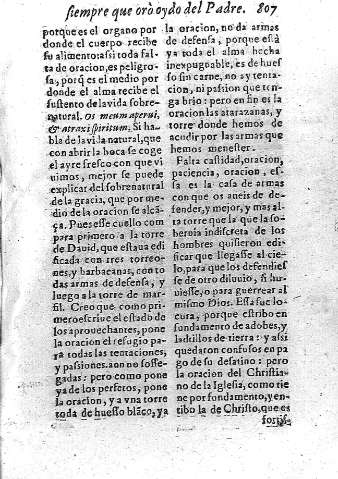 siempre que orò oydo del Padre. 807
porque es el organo por
donde el cuerpo recibe
su alimento: assi toda fal-
ta de oracion, es peligro-
sa, porq̃ es el medio por
donde el alma recibe el
sustento de la vida sobre-
natural. Os meum aperui,
& atraxi spiritum. Si ha-
bla de la vida natural, que
con abrir la boca se coge
el ayre fresco con que vi
uimos, mejor se puede
explicar del sobrenatural
de la gracia, que por me-
dio de la oracion se alcã-
ça. Pues esse cuello com
para primero a la torre
de Dauid, que estaua edi
ficada con tres torreo-
nes, y barbacanas, con to
das armas de defensa, y
luego a la torre de mar-
fil. Creo que como pri-
mero escriue el estado de
los aprouechantes, pone
la oracion el refugio pa-
ra todas las tentaciones,
y passiones aun no sosse-
gadas: pero como pone
ya de los perfetos, pone
la oracion, y a vna torre
toda de huesso blãco, ya
la oracion, no da armas
de defensa, porque està
ya toda el alma hecha
inexpugnable, es de hues
so sin carne, no ay tenta-
cion, ni passion que ten-
ga brio: pero en fin es la
oracion las atarazanas, y
torre donde hemos de
acudir por las armas que
hemos menester.
Falta castidad, oracion,
paciencia, oracion, es-
sa es la casa de armas
con que os aueis de de-
fender, y mejor, y mas al-
ta torre que la que la so-
beruia indiscreta de los
hombres quisieron edi-
ficar que llegasse al cie-
lo, para que los defendies
se de otro diluuio, si hu-
uiesse, o para guerrear al
mismo Dios. Essa fue lo-
cura, porque estribo en
fundamento de adobes, y
ladrillos de tierra: y assi
quedaron confusos en pa-
go de su desatino: pero
la oracion del Christia-
no de la Iglesia, como tie
ne por fundamento, y en-
tibo la de Christo, que es
fortis-